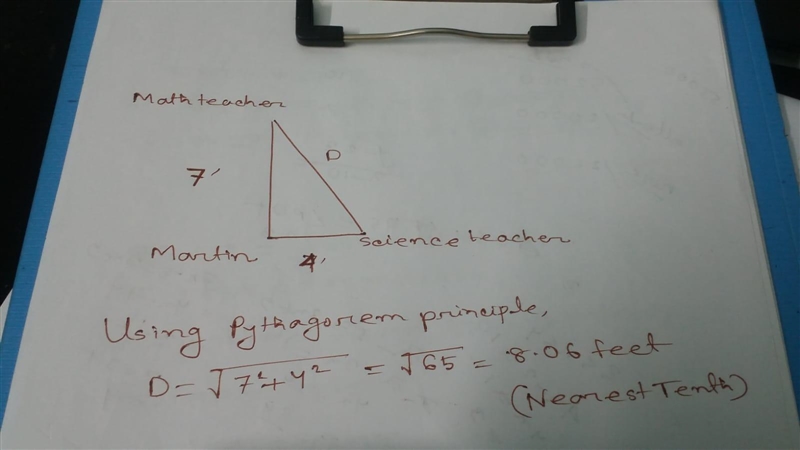 Math teacher
D
7'
Martin
4'
Science teacher
Using Pythagorem principle,
D = √7²+4² = √65 = 8.06 feet
(Nearest Tenth)